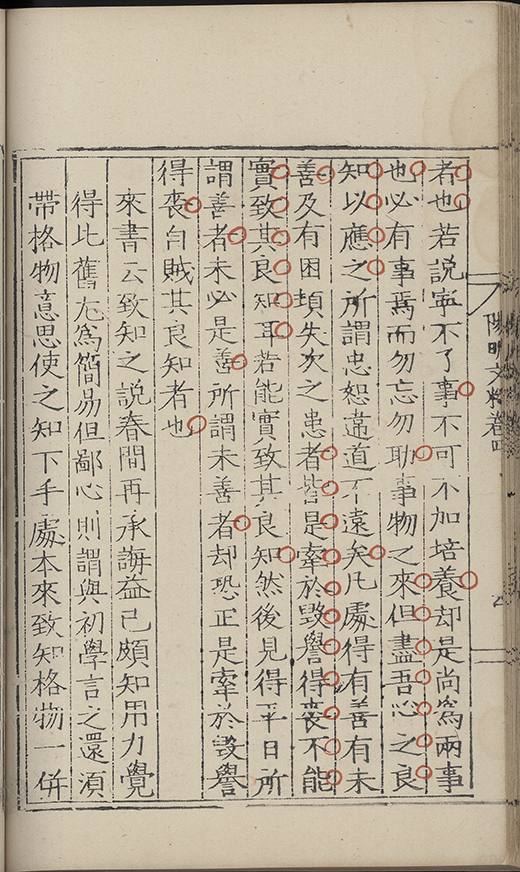 陽明文粹卷四
者也若說寧不了事不可不加培養却是尚爲兩事
也必有事焉而勿忘勿助事物之來但盡吾心之良
知以應之所謂忠恕違道不遠矣凡處得有善有未
善及有困頓失次之患者皆是牽於毀譽得喪不能
實致其良知耳若能實致其良知然後見得平日所
謂善者未必是善所謂未善者却恐正是牽於毀譽
得喪自賊其良知者也
來書云致知之說春間再承誨益已頗知用力覺
得比舊尤爲簡易但鄙心則謂與初學言之還須
帶格物意思使之知下手處本來致知格物一併